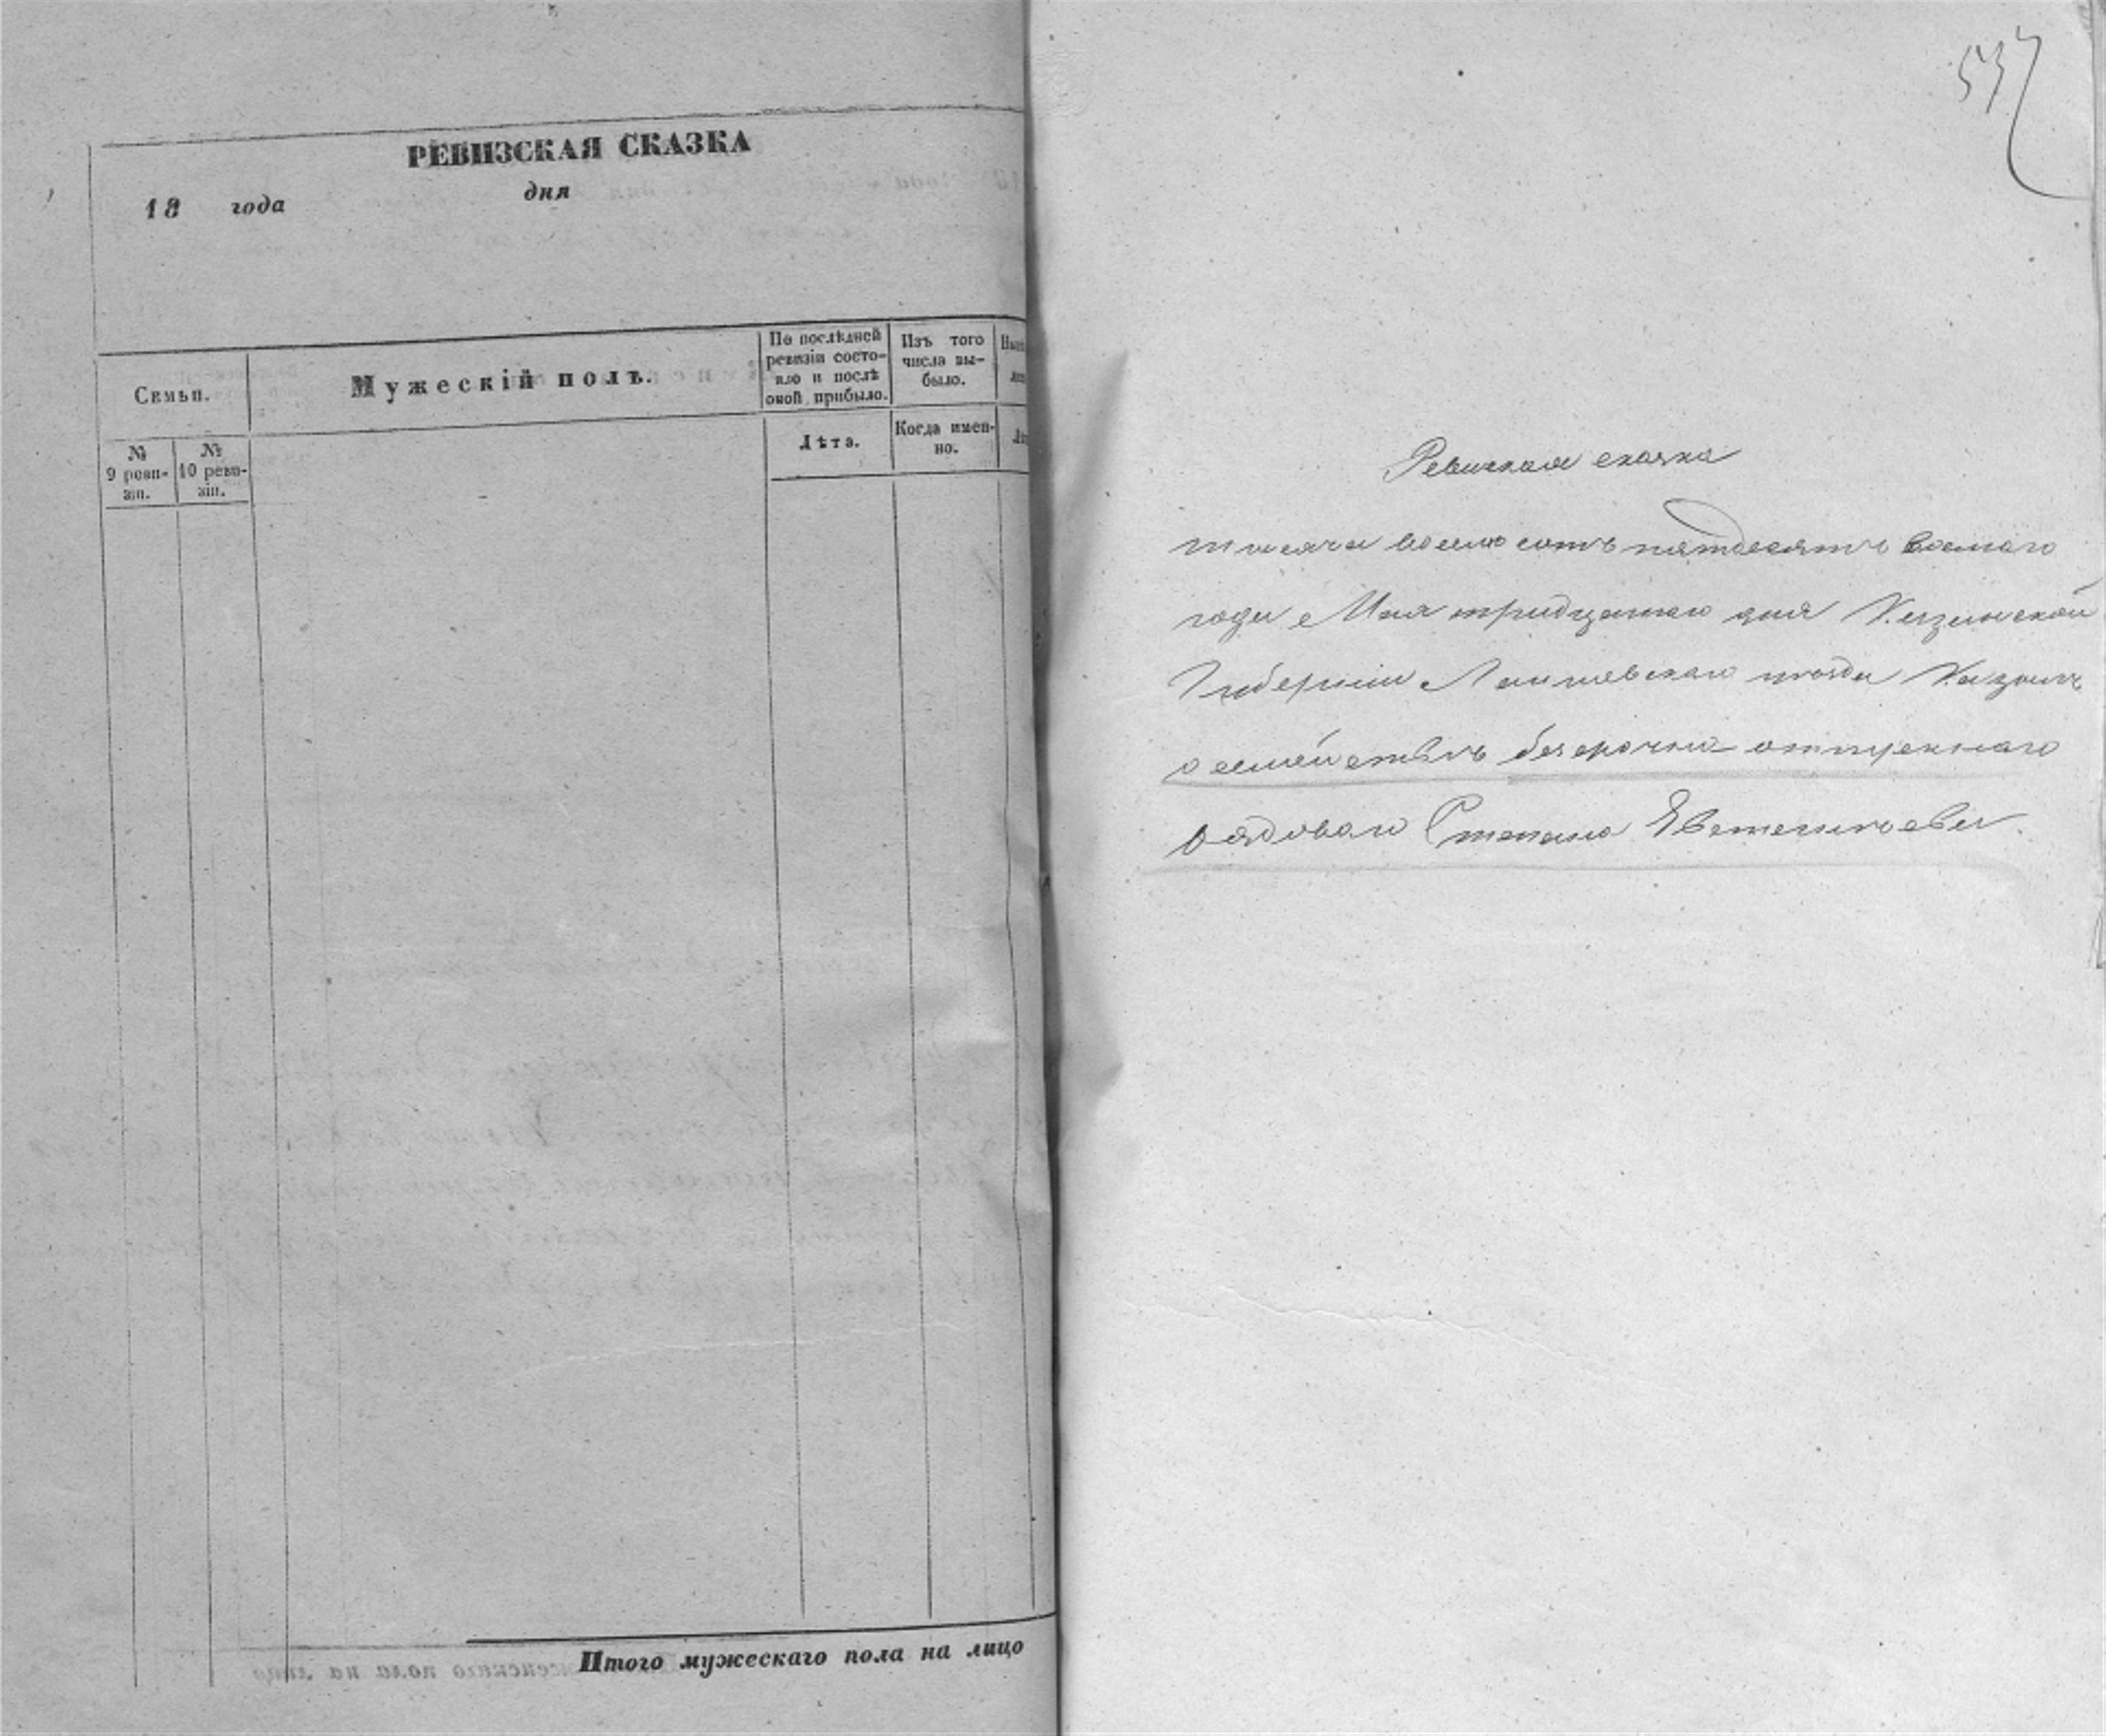 РЕВИЗСКАЯ СКАЗКА
18 года дня
Семьи.
Мужескій полъ.
По послѣдней ревизіи состояло и послѣ оной прибыло.
Изъ того числа выбыло.
№ 9 ревизіи.
№ 10 ревизіи.
Лѣта.
Когда именно.
Итого мужескаго пола на лицо
537
Ревизская сказка
тысяча восемь сотъ пятдесятъ восмаго
года Мая тридцатаго дня Казанской
Губерніи Лаишевскаго уѣзда
о семействѣ безсрочно отпускнаго
рядоваго Степана